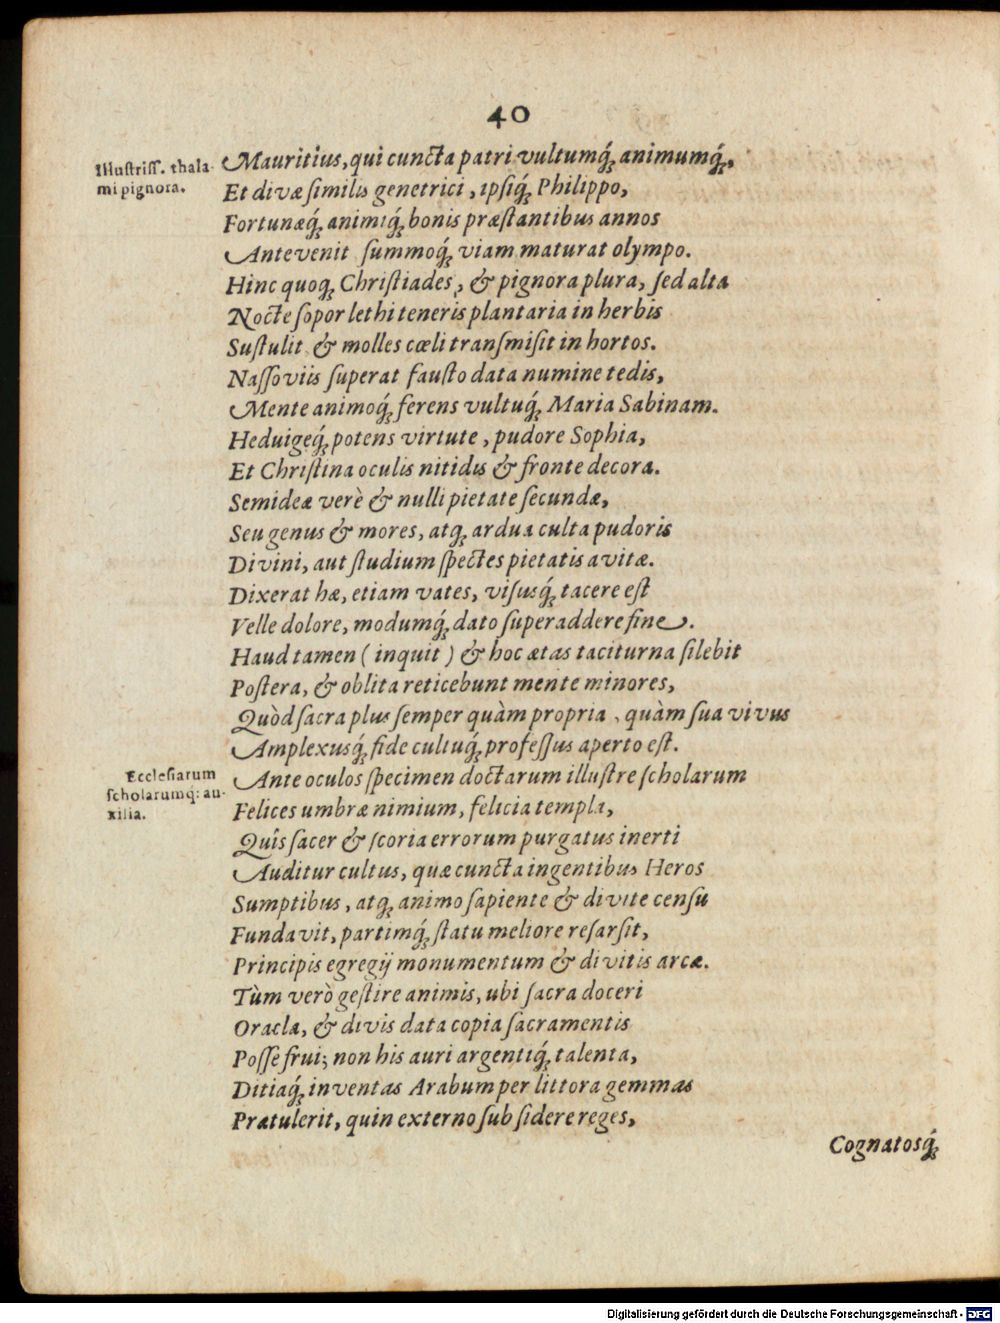 40
Illustriss. thala-
mi pignora.
Mauritius, qui cuncta patri vultumq́; animumq́;,
Et divæ similis genetrici, ipsiq́; Philippo,
Fortunæq́; animiq́; bonis præstantibus annos
Antevenit summoq́; viam maturat olympo.
Hinc quoq; Christiades, & pignora plura, sed alta
Nocte sopor lethi teneris plantaria in herbis
Sustulit & molles cœli transmisit in hortos.
Nassoviis superat fausto data numine tedis,
Mente animoq́; ferens vultuq́; Maria Sabinam.
Heduigeq́; potens virtute, pudore Sophia,
Et Christina oculis nitidis & fronte decora.
Semideæ verè & nulli pietate secundæ,
Seu genus & mores, atq; ardua culta pudoris
Divini, aut studium spectes pietatis avitæ.
Dixerat hæ, etiam vates, visusq́; tacere est
Velle dolore, modumq́; dato superaddere fine.
Haud tamen (inquit) & hoc ætas taciturna silebit
Postera, & oblita reticebunt mente minores,
Quòd sacra plus semper quàm propria, quàm sua vivus
Amplexusq́; fide cultuq́; professus aperto est.
Ecclesiarum
scholarumq; au-
xilia.
Ante oculos specimen doctarum illustre scholarum
Felices umbræ nimium, felicia templa,
Quîs sacer & scoria errorum purgatus inerti
Auditur cultus, quæ cuncta ingentibus Heros
Sumptibus, atq; animo sapiente & divite censu
Fundavit, partimq́; statu meliore resarsit,
Principis egregij monumentum & divitis arcæ.
Tùm verò gestire animis, ubi sacra doceri
Oracla, & divis data copia sacramentis
Posse frui; non his auri argentiq́; talenta,
Ditiaq́; inventas Arabum per littora gemmas
Prætulerit, quin externo sub sidere reges,
Cognatosq́;
Digitalisierung gefördert durch die Deutsche Forschungsgemeinschaft - DFG